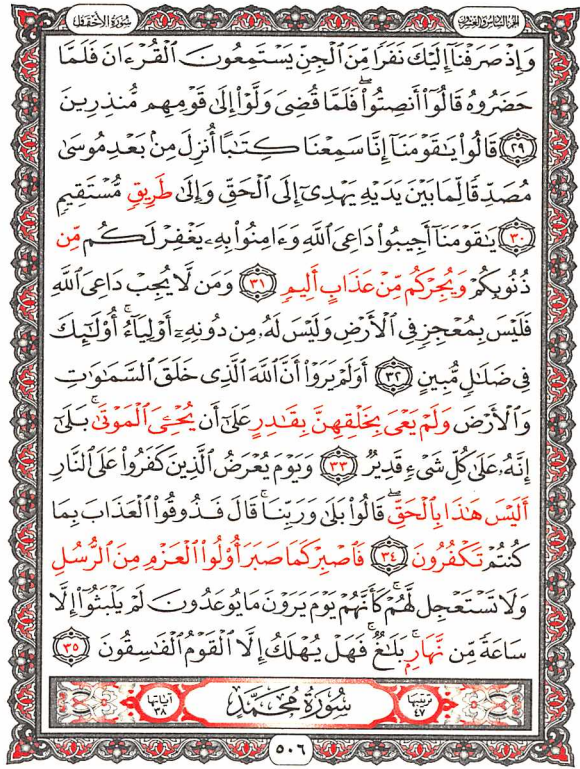 الجزء السادس والعشرون سورة الأحقاف
وَإِذْ صَرَفْنَآ إِلَيْكَ نَفَرًا مِّنَ ٱلْجِنِّ يَسْتَمِعُونَ ٱلْقُرْءَانَ فَلَمَّا
حَضَرُوهُ قَالُوٓا۟ أَنصِتُوا۟ ۖ فَلَمَّا قُضِىَ وَلَّوْا۟ إِلَىٰ قَوْمِهِم مُّنذِرِينَ
٢٩ قَالُوا۟ يَٰقَوْمَنَآ إِنَّا سَمِعْنَا كِتَٰبًا أُنزِلَ مِنۢ بَعْدِ مُوسَىٰ
مُصَدِّقًا لِّمَا بَيْنَ يَدَيْهِ يَهْدِىٓ إِلَى ٱلْحَقِّ وَإِلَىٰ طَرِيقٍ مُّسْتَقِيمٍ
٣٠ يَٰقَوْمَنَآ أَجِيبُوا۟ دَاعِىَ ٱللَّهِ وَءَامِنُوا۟ بِهِۦ يَغْفِرْ لَكُم مِّن
ذُنُوبِكُمْ وَيُجِرْكُم مِّنْ عَذَابٍ أَلِيمٍ ٣١ وَمَن لَّا يُجِبْ دَاعِىَ ٱللَّهِ
فَلَيْسَ بِمُعْجِزٍ فِى ٱلْأَرْضِ وَلَيْسَ لَهُۥ مِن دُونِهِۦٓ أَوْلِيَآءُ ۚ أُو۟لَٰٓئِكَ
فِى ضَلَٰلٍ مُّبِينٍ ٣٢ أَوَلَمْ يَرَوْا۟ أَنَّ ٱللَّهَ ٱلَّذِى خَلَقَ ٱلسَّمَٰوَٰتِ
وَٱلْأَرْضَ وَلَمْ يَعْىَ بِخَلْقِهِنَّ بِقَٰدِرٍ عَلَىٰٓ أَن يُحْۦِىَ ٱلْمَوْتَىٰ ۚ بَلَىٰٓ
إِنَّهُۥ عَلَىٰ كُلِّ شَىْءٍ قَدِيرٌ ٣٣ وَيَوْمَ يُعْرَضُ ٱلَّذِينَ كَفَرُوا۟ عَلَى ٱلنَّارِ
أَلَيْسَ هَٰذَا بِٱلْحَقِّ ۖ قَالُوا۟ بَلَىٰ وَرَبِّنَا ۚ قَالَ فَذُوقُوا۟ ٱلْعَذَابَ بِمَا
كُنتُمْ تَكْفُرُونَ ٣٤ فَٱصْبِرْ كَمَا صَبَرَ أُو۟لُوا۟ ٱلْعَزْمِ مِنَ ٱلرُّسُلِ
وَلَا تَسْتَعْجِل لَّهُمْ ۚ كَأَنَّهُمْ يَوْمَ يَرَوْنَ مَا يُوعَدُونَ لَمْ يَلْبَثُوٓا۟ إِلَّا
سَاعَةً مِّن نَّهَارٍۭ ۚ بَلَٰغٌ ۚ فَهَلْ يُهْلَكُ إِلَّا ٱلْقَوْمُ ٱلْفَٰسِقُونَ ٣٥
ترتيبها ٤٧ سُورَةُ مُحَمَّدٍ آياتها ٣٨
٥٠٦